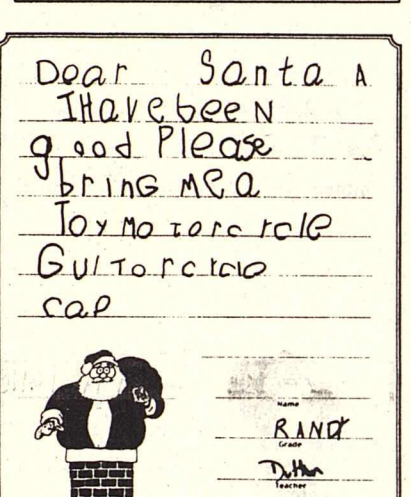 Dear Santa A
IHave beeN
good Please
brinG Me a
Toy Motorcrcle
GuiTorcrclo
cap
Name
RANDY
Grade
Teacher